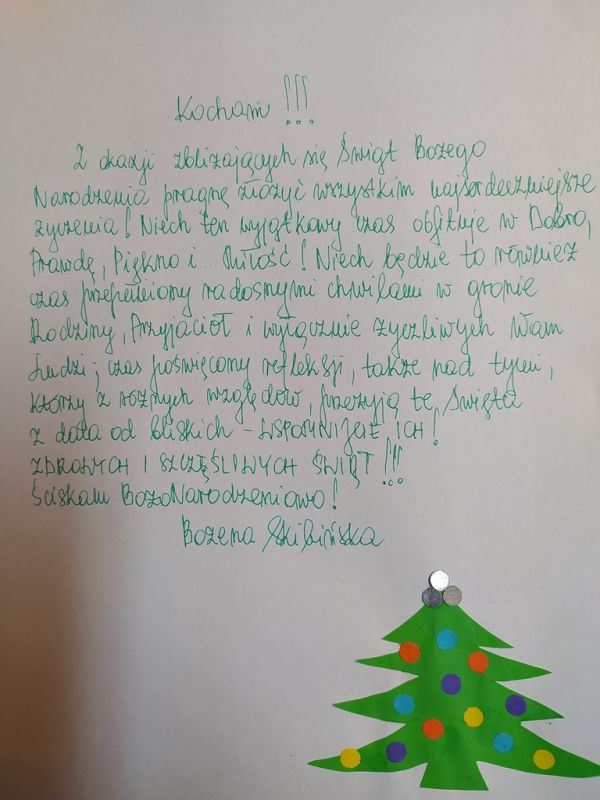 Kochani!!!
Z okazji zbliżających się Świąt Bożego
Narodzenia pragnę złożyć wszystkim najserdeczniejsze
życzenia! Niech ten wyjątkowy czas obfituje w Dobro,
Prawdę, Piękno i... Miłość! Niech będzie to również
czas przepełniony radosnymi chwilami w gronie
Rodziny, Przyjaciół i wyłącznie życzliwych Wam
Ludzi; czas poświęcony refleksji, także nad tymi,
którzy z różnych względów, przeżyją te Święta
z dala od bliskich - WSPOMNIJCIE ICH!
ZDROWYCH I SZCZĘŚLIWYCH ŚWIĄT!!!
Ściskam BożoNarodzeniowo!
Bożena Skibińska